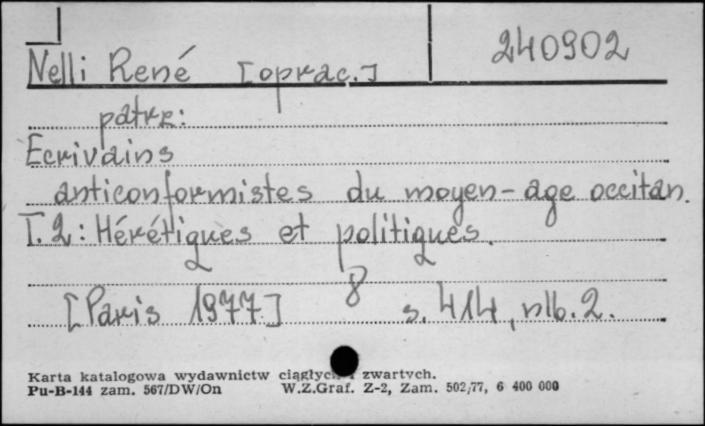 Nelli René [oprac.] 240902
patrz:
Ecrivains
anticonformistes du moyen-age occitan.
T. 2: Hérétiques et politiques.
[Paris 1977] 8 s. 414, nlb. 2.
Karta katalogowa wydawnictw ciągłych i zwartych.
Pu-B-144 zam. 567/DW/On W.Z.Graf. Z-2, Zam. 502/77, 6 400 000